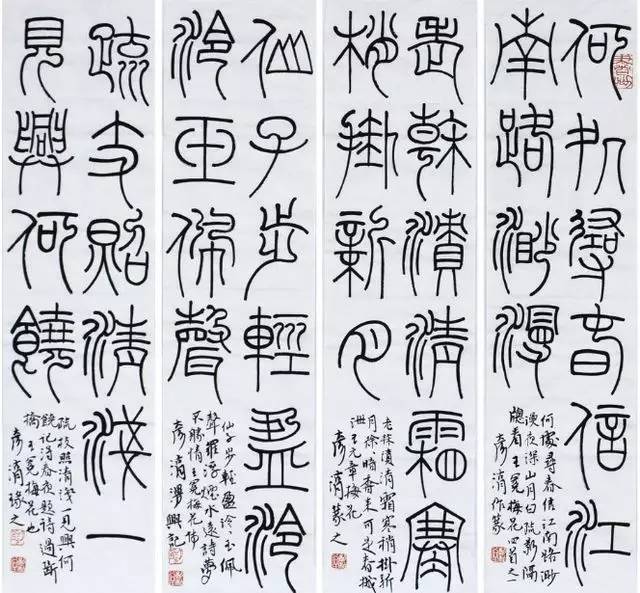 何処尋春信江
南路渺漫
何處尋春信江南路渺
漫夜深山月白疏影隔
窗看王冕梅花四首之一
作篆
老榦濆清霜寒
梢掛新月
老榦濆清霜寒梢掛新
月徐暗香来可是春
王元章梅花
篆之
仙子步輕盈泠
泠玉佩聲
仙子步輕盈泠泠玉佩
聲羅浮煙水遠詩夢
不勝情王冕梅花
漫興記
疏支照清淺一
見興何饒
疏枝照清淺一見興何
饒記得春夜題詩過断
橋王冕梅花也
録之